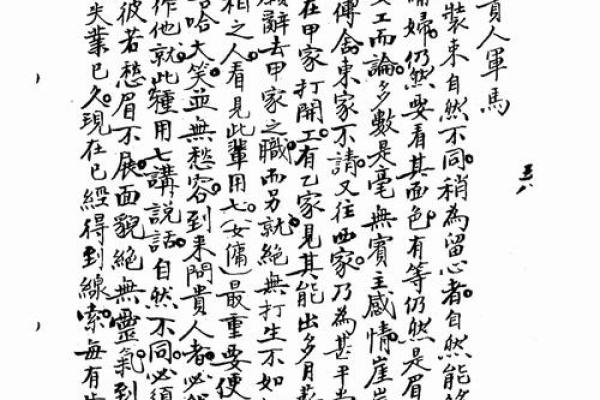 貴人軍馬
裝束自然不同。稍為留心者。自然能
婦。仍然要看其面色。有等仍然是眉
工而論。多數是毫無賓主感情。崖岸
傳舍。東家不請。又往西家。乃為甚平常
在甲家打開工。有乙家見其能出多月薪
辭去甲家之職。而另就。絕無打生不如
相之人。看見此輩用七(女傭)最重要便
哈大笑。並無愁容。到来問貴人者。必
作他就。此種用七講說話。自然不同。必須
彼若愁眉不展。面貌絕無靈氣。到
失業已久。現在已經得到線索。每有
五八